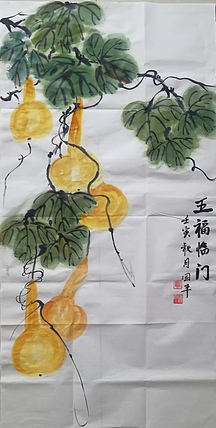 五福临门
壬寅秋月国平